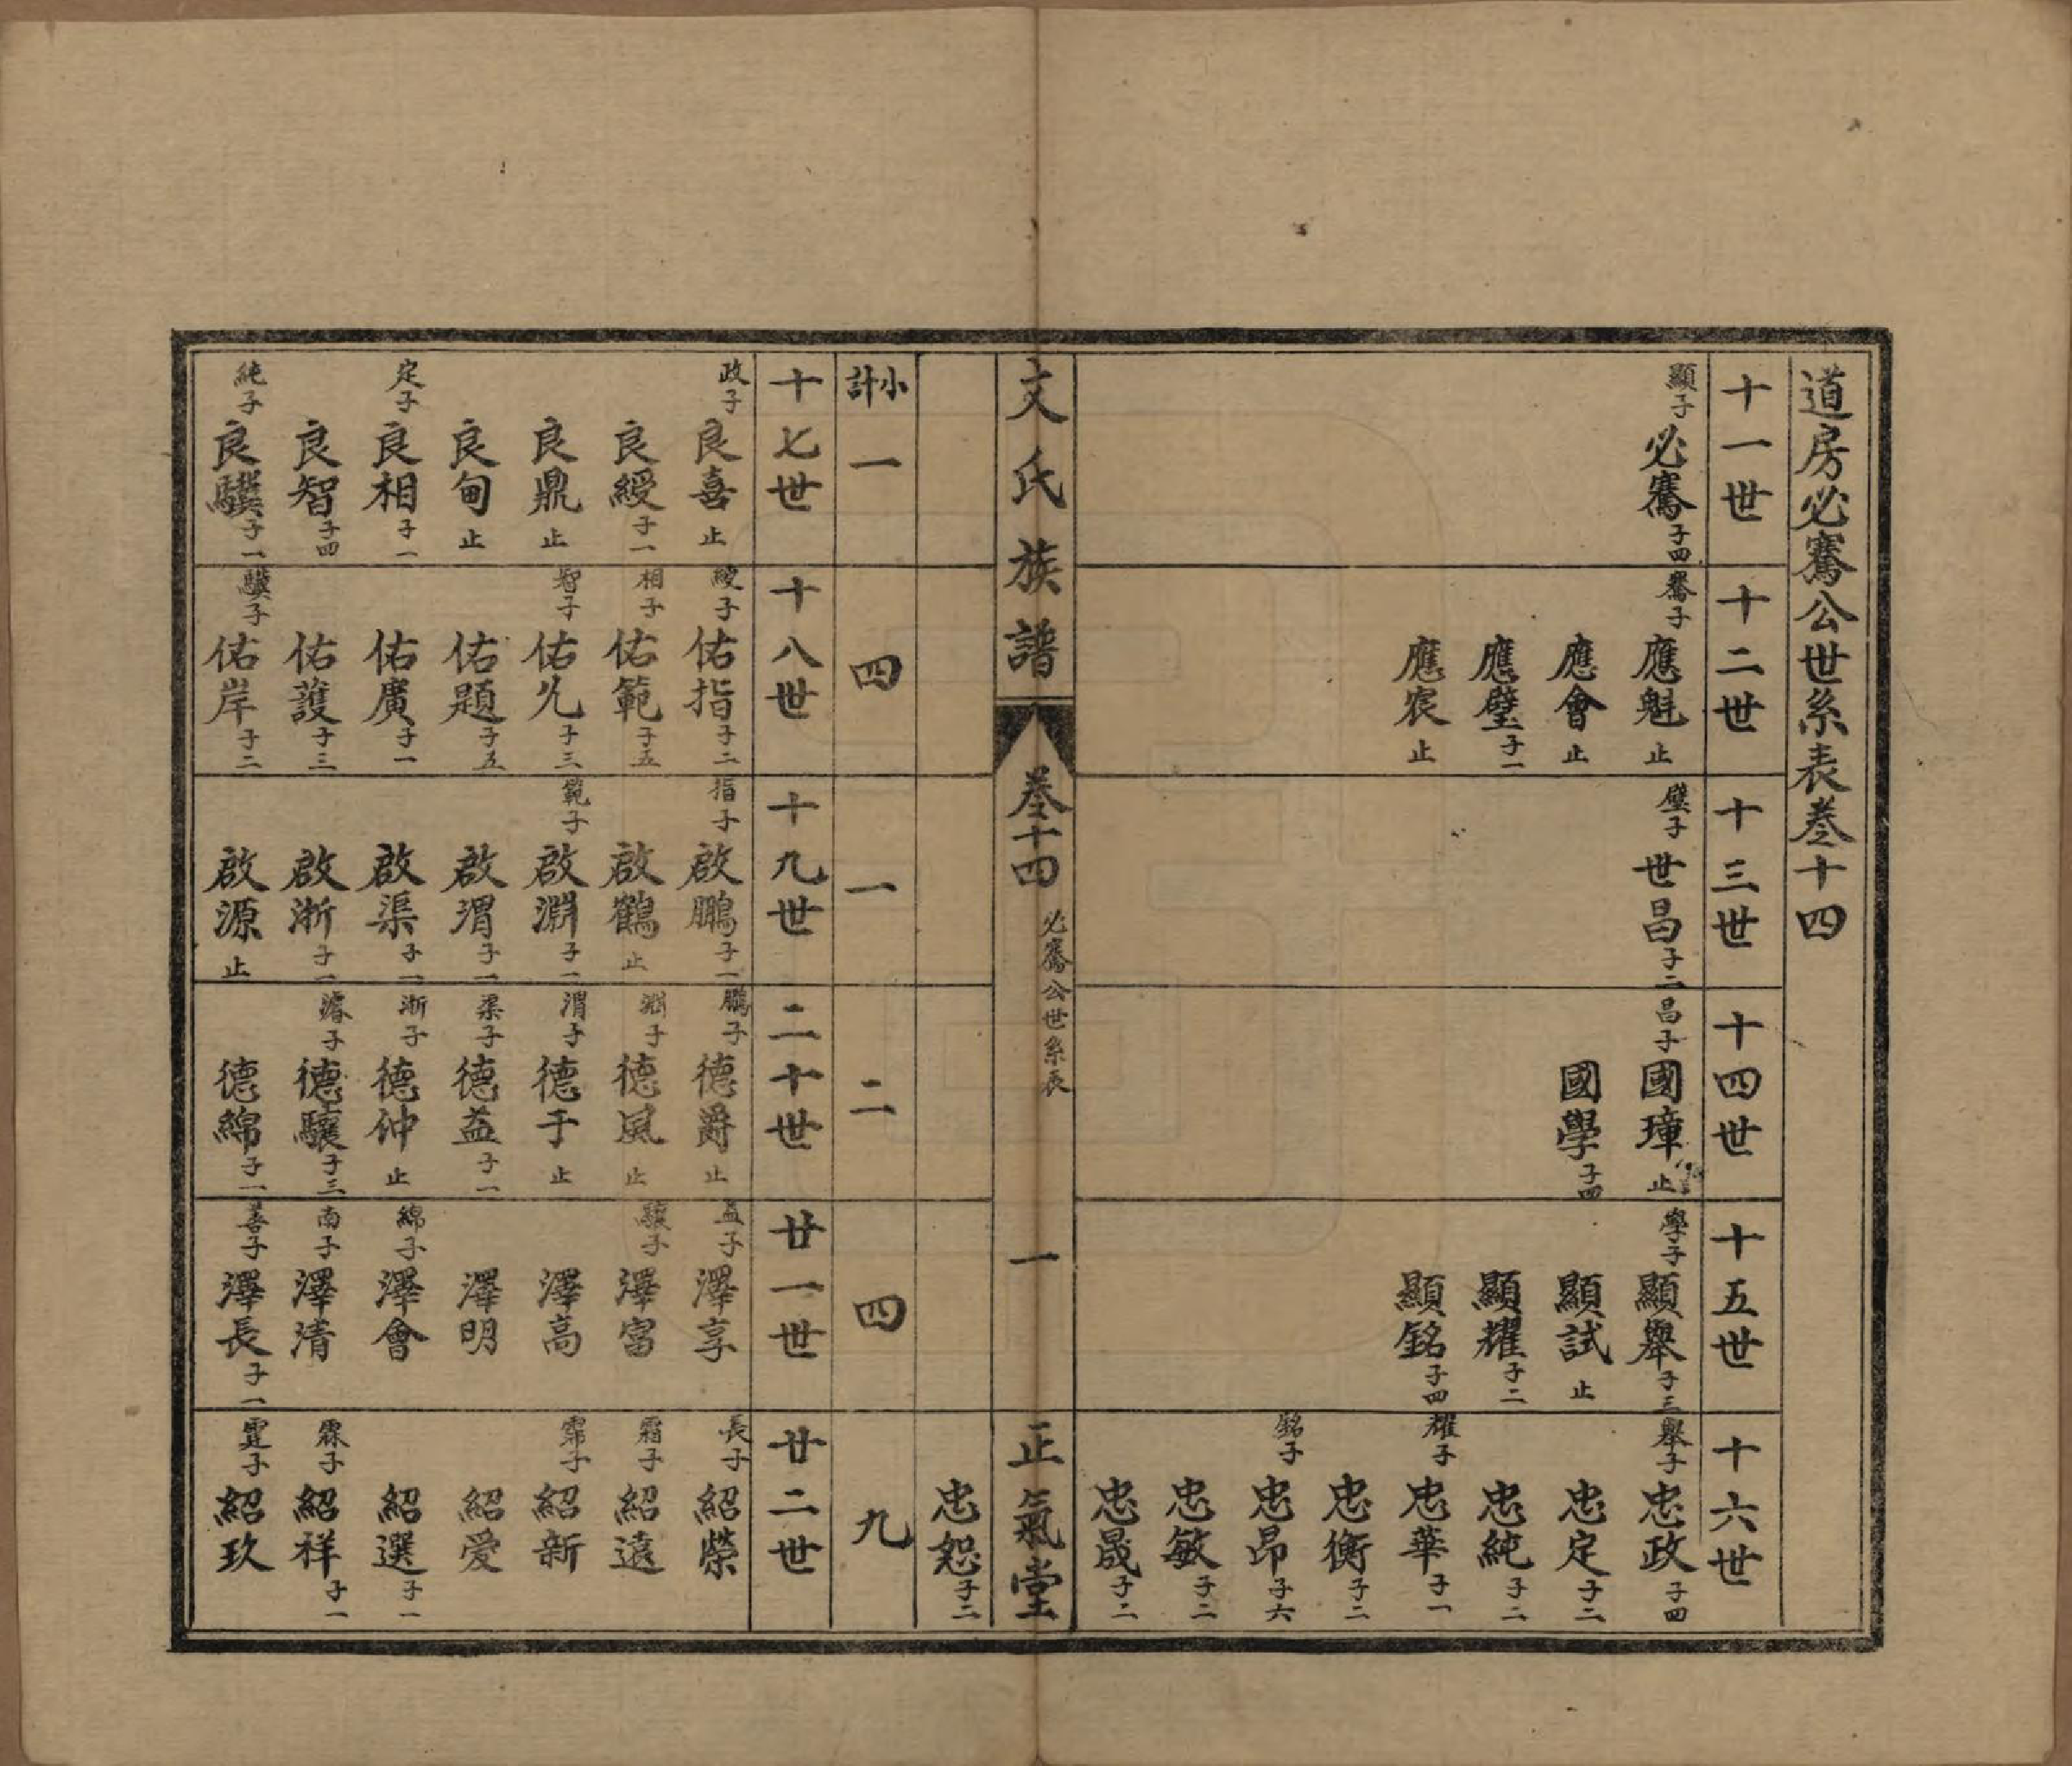 道房必騫公世系表卷十四
十一世
顯子 必騫 子四
十二世
騫子 應魁 止
應會 止
應璧 子一
應宸 止
十三世
璧子 世昌 子二
十四世
昌子 國璋 止
國學 子四
十五世
學子 顯舉 子三
顯試 止
顯耀 子二
顯銘 子四
十六世
舉子 忠政 子四
忠定 子二
忠純 子二
耀子 忠華 子一
忠衡 子二
銘子 忠昂 子六
忠敏 子二
忠晟 子二
文氏族譜
卷十四 必騫公世系表
一
正氣堂
忠恕 子二
小計
一
四
一
二
四
九
十七世
政子 良喜 止
良綬 子一
良鼎 止
良甸 止
定子 良相 子一
良智 子四
純子 良驥 子一
十八世
綬子 佑指 子二
相子 佑範 子五
智子 佑允 子三
佑題 子五
佑廣 子一
佑護 子三
驥子 佑岸 子二
十九世
指子 啟鵬 子一
啟鶴 止
範子 啟淵 子一
啟渭 子一
啟渠 子一
啟浙 子一
啟源 止
二十世
鵬子 德爵 止
淵子 德風 止
渭子 德于 止
渠子 德益 子一
浙子 德仲 止
濬子 德驤 子三
德綿 子一
廿一世
益子 澤享
驤子 澤富
澤高
澤明
綿子 澤會
南子 澤清
善子 澤長 子一
廿二世
長子 紹榮
霜子 紹遠
霈子 紹新
紹愛
紹選 子一
霖子 紹祥 子一
霆子 紹玖